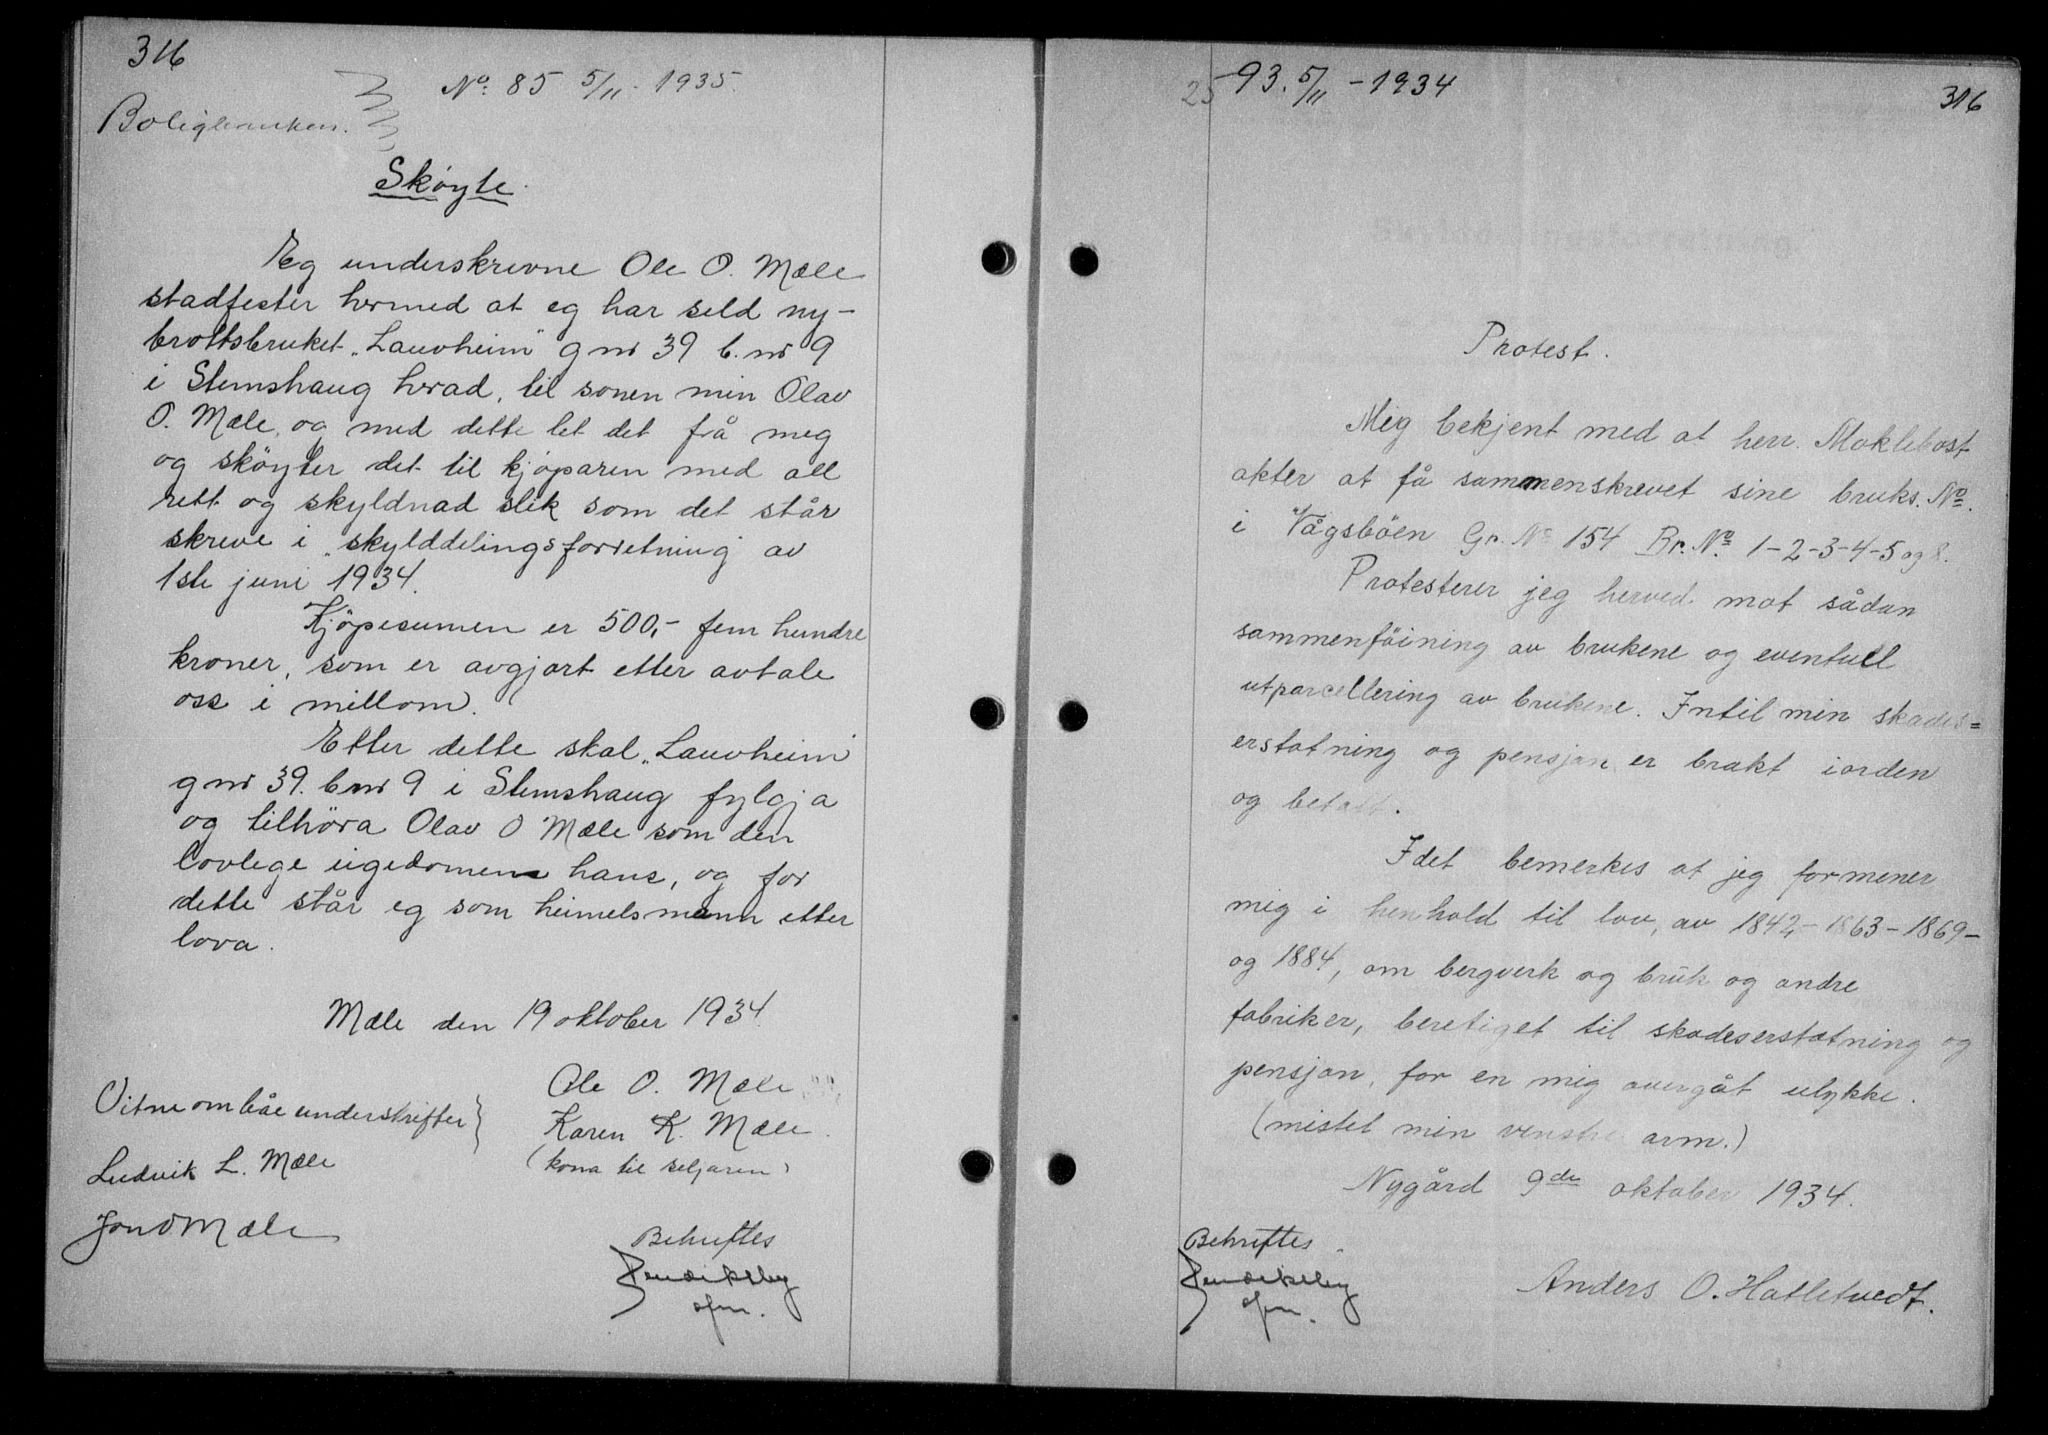 316
No. 85 5/11 - 1935.
Boligbanken.
Skøyte.
Eg underskrevne Ole O. Mæle
stadfester hermed at eg har seld ny-
brottsbruket "Lauvheim" g nr 39 b. nr 9
i Stemshaug herad, til sonen min Olav
O. Mæle, og med dette let det frå meg
og skøyter det til kjøparen med all
rett og skyldnad slik som det står
skreve i "skylddelingsforretning" av
1ste juni 1934.
Kjöpesumen er 500,- fem hundre
kroner, som er avgjort etter avtale
oss i millom.
Etter dette skal "Lauvheim"
g nr 39. b nr 9 i Stemshaug fylgja
og tilhöra Olav O Mæle som den
lovlege eigedomen hans, og for
dette står eg som heimelsmann etter
lova.
Mæle den 19 oktober 1934.
Ole O. Mæle
Karen K. Mæle.
(kona til seljaren)
Vitne om båe underskrifter }
Ludvik L. Mæle
Jon O Mæle
Bekreftes
ofm.
25 93. 5/11 - 1934
316
Protest.
Mig bekjent med at herr. Moklebost
akter at få sammenskrevet sine bruks. No.
i Vågsböen Gr. No 154 Br. No. 1-2-3-4-5 og 8.
Protesterer jeg herved mot sådan
sammenföining av brukene og eventuell
utparcellering av brukene. Intil min skades=
erstatning og pensjon er brakt i orden
og betalt.
Idet bemerkes at jeg formener
mig i henhold til lov, av 1842,- 1863 - 1869 -
og 1884, om bergverk og bruk og andre
fabriker, beretiget til skadeserstatning og
pensjon, for en mig overgåt ulykke.
(mistet min venstre arm.)
Nygård 9de oktober 1934.
Bekreftes
ofm.
Anders O. Hatletvedt.